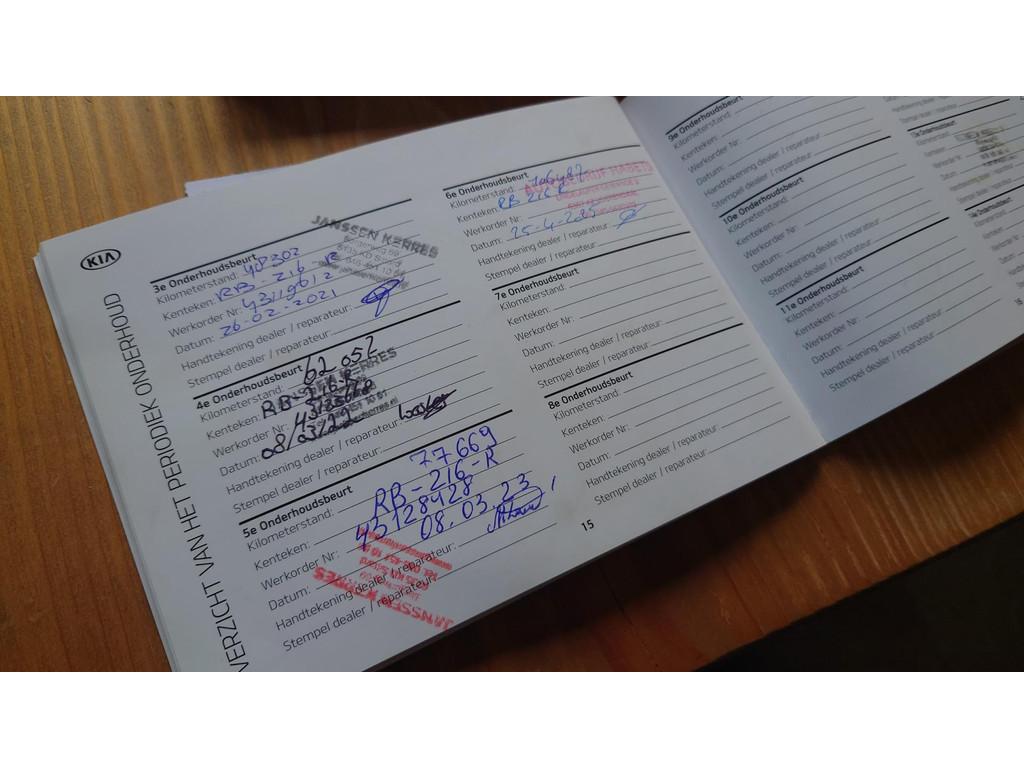 KIA
VERZICHT VAN HET PERIODIEK ONDERHOUD
3e Onderhoudsbeurt
Kilometerstand: 48202
Kenteken: RB-216-R
Werkorder Nr: 4311961 2
Datum: 26-02-2021
Handtekening dealer / reparateur:
Stempel dealer / reparateur:
JANSSEN KERRES
4e Onderhoudsbeurt
Kilometerstand: 62 052
Kenteken: RB-216-R
Werkorder Nr:
Datum: 08/03/22
Handtekening dealer / reparateur:
Stempel dealer / reparateur:
5e Onderhoudsbeurt
Kilometerstand: 77669
Kenteken: RB-216-R
Werkorder Nr: 43128428
Datum: 08.03.23
Handtekening dealer / reparateur:
Stempel dealer / reparateur:
JANSSEN KERRES
6e Onderhoudsbeurt
Kilometerstand: 106487
Kenteken: RB 216 R
Werkorder Nr:
Datum: 25-4-2025
Handtekening dealer / reparateur:
Stempel dealer / reparateur:
7e Onderhoudsbeurt
Kilometerstand:
Kenteken:
Werkorder Nr:
Datum:
Handtekening dealer / reparateur:
Stempel dealer / reparateur:
8e Onderhoudsbeurt
Kilometerstand:
Kenteken:
Werkorder Nr:
Datum:
Handtekening dealer / reparateur:
Stempel dealer / reparateur:
15
9e Onderhoudsbeurt
Kilometerstand:
Kenteken:
Werkorder Nr:
Datum:
Handtekening dealer / reparateur:
Stempel dealer / reparateur:
10e Onderhoudsbeurt
Kilometerstand:
Kenteken:
Werkorder Nr:
Datum:
Handtekening dealer / reparateur:
Stempel dealer / reparateur:
11e Onderhoudsbeurt
Kilometerstand:
Kenteken:
Werkorder Nr:
Datum:
Handtekening dealer / reparateur:
Stempel dealer / reparateur: